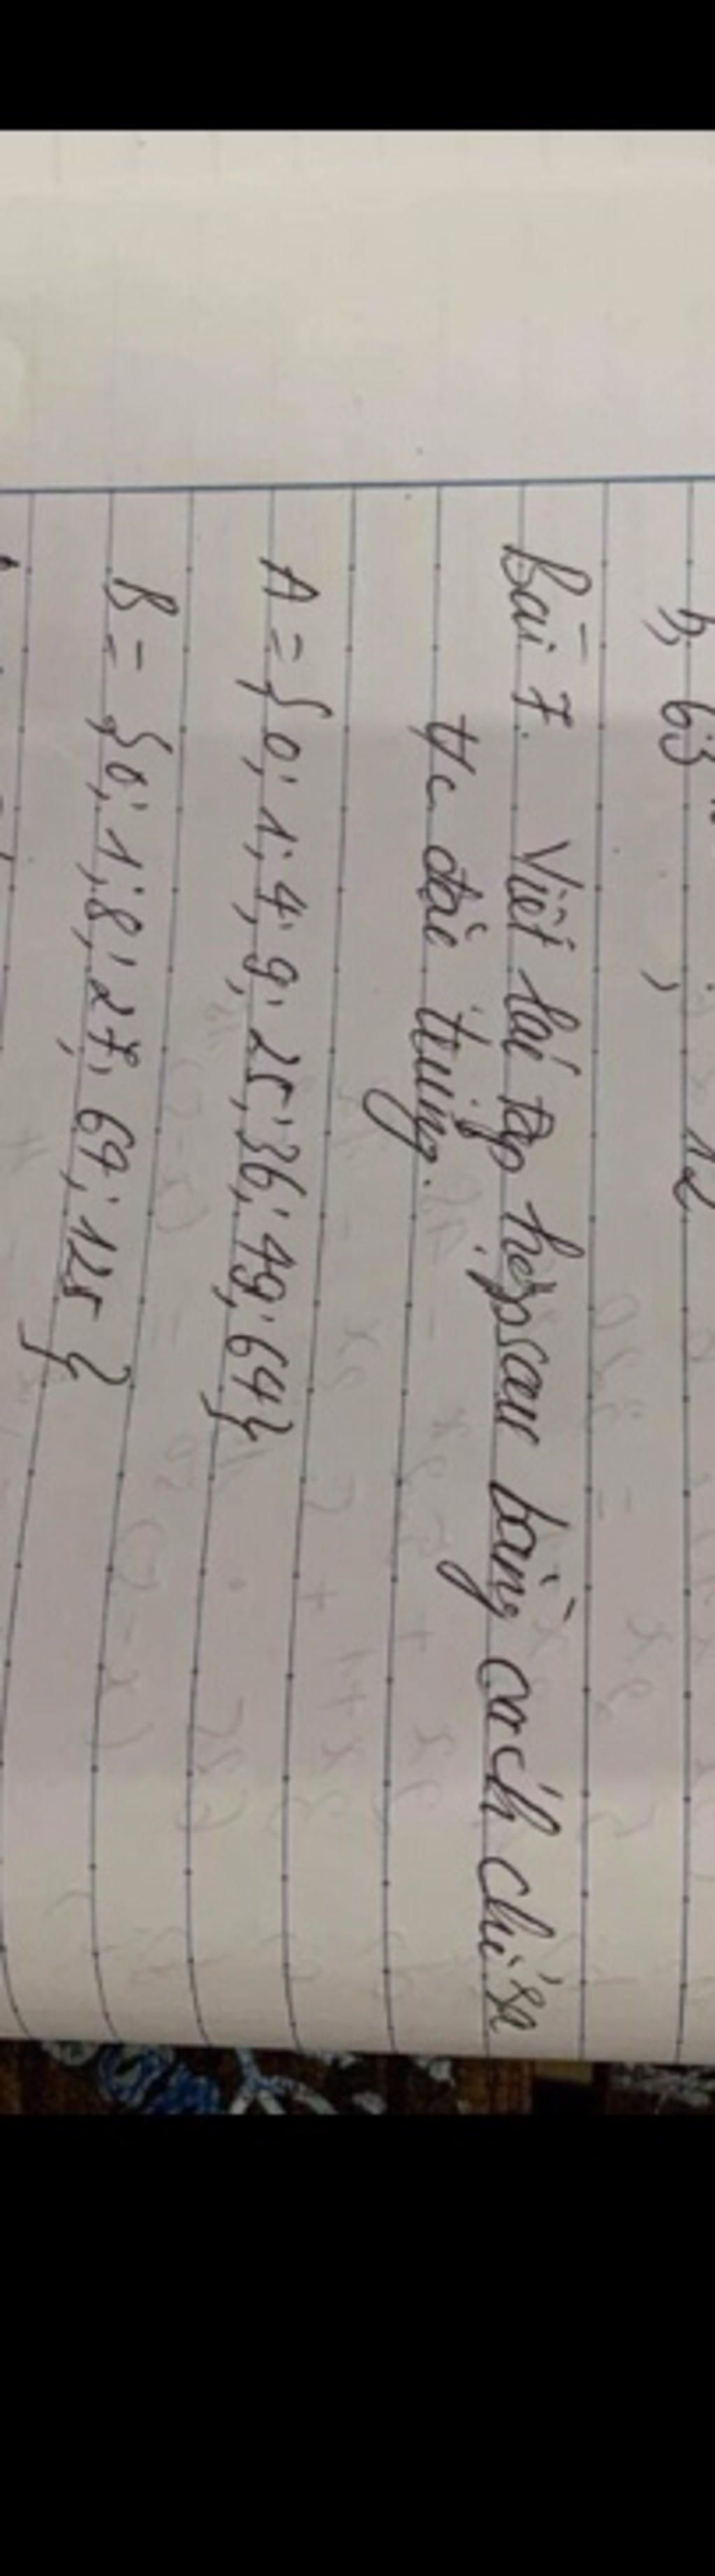 b, 63 ; 12
Bài 7. Viết lại tập hợp sau bằng cách chỉ ra
t/c đặc trưng.
A = {0; 1; 4; 9; 25; 36; 49; 64}
B = {0; 1; 8; 27; 64; 125}